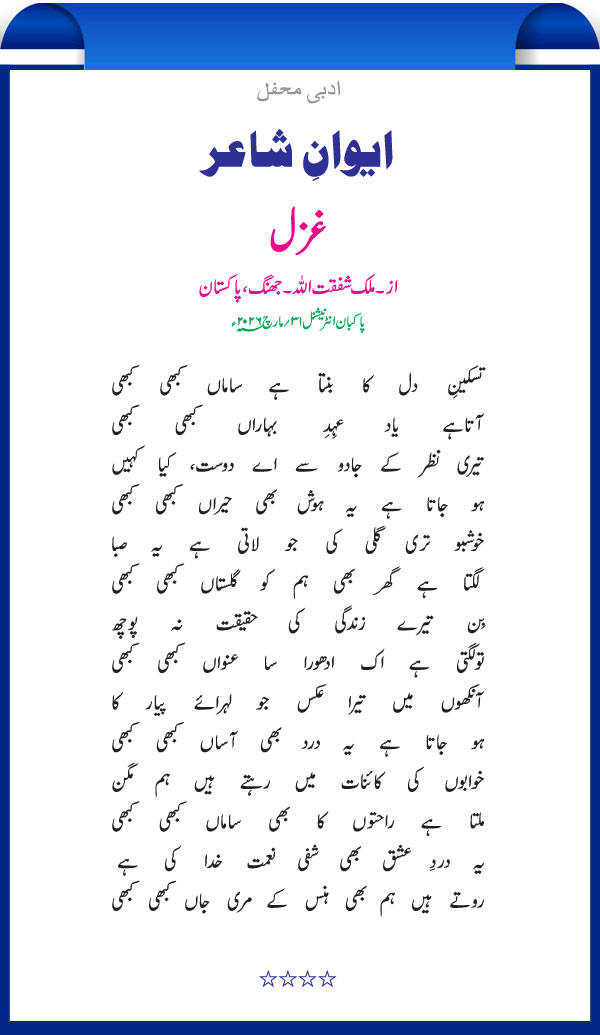 ادبی محفل
ایوانِ شاعر
غزل
از۔ملک شفقت اللہ۔جھنگ، پاکستان
پاکبان انٹرنیشنل ۳۱؍ مارچ ۲۰۲۶ء
تسکینِ دل کا بنتا ہے ساماں کبھی کبھی
آتاہے یاد عہدِ بہاراں کبھی کبھی
تیری نظر کے جادو سے اے دوست، کیا کہیں
ہو جاتا ہے یہ ہوش بھی حیراں کبھی کبھی
خوشبو تری گلی کی جو لاتی ہے یہ صبا
لگتا ہے گھر بھی ہم کو گلستاں کبھی کبھی
بن تیرے زندگی کی حقیقت نہ پوچھ
تولگتی ہے اک ادھورا سا عنواں کبھی کبھی
آنکھوں میں تیرا عکس جو لہرائے پیار کا
ہو جاتا ہے یہ درد بھی آساں کبھی کبھی
خوابوں کی کائنات میں رہتے ہیں ہم مگن
ملتا ہے راحتوں کا بھی ساماں کبھی کبھی
یہ دردِ عشق بھی شفی نعمت خدا کی ہے
روتے ہیں ہم بھی ہنس کے مری جاں کبھی کبھی
☆☆☆☆